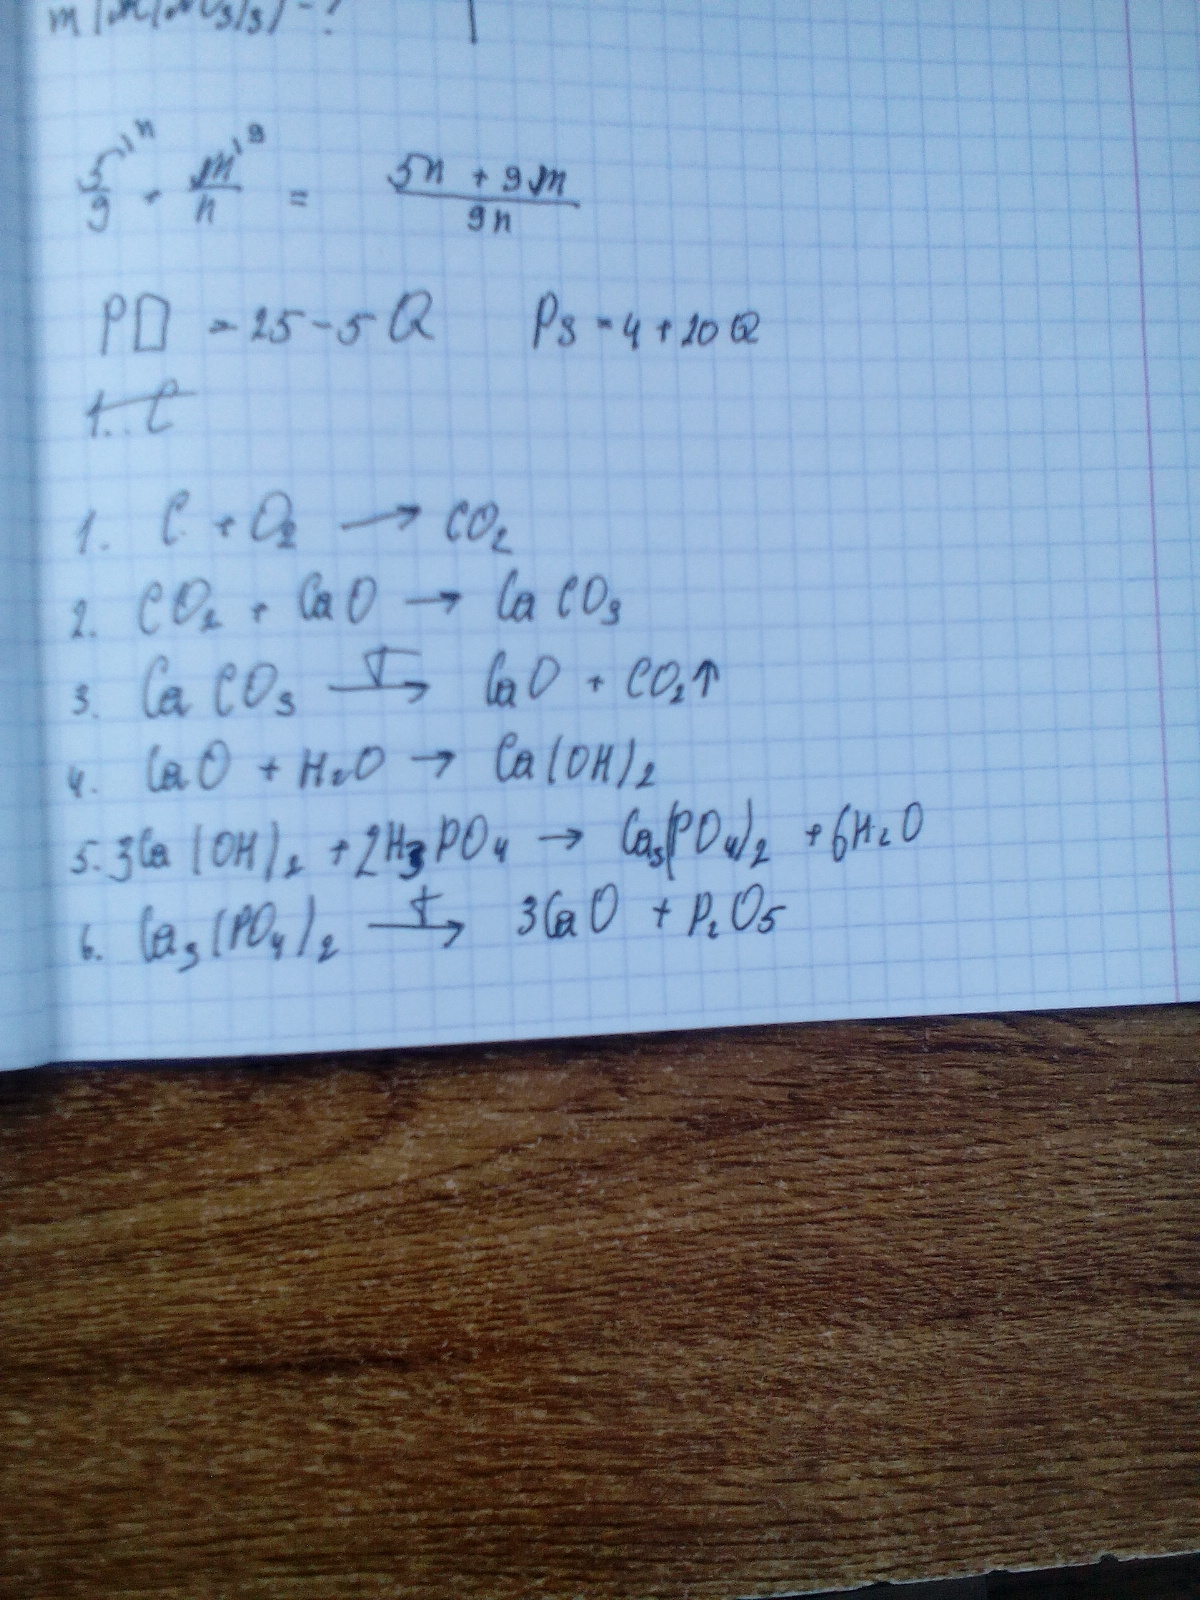 5/9 + m/n = (5n + 9m)/9n
PD = 25 - 5Q Ps = 4 + 20Q
1. C
1. C + O₂ → CO₂
2. CO₂ + CaO → CaCO₃
3. CaCO₃ —T→ CaO + CO₂↑
4. CaO + H₂O → Ca(OH)₂
5. 3Ca(OH)₂ + 2H₃PO₄ → Ca₃(PO₄)₂ + 6H₂O
6. Ca₃(PO₄)₂ —t→ 3CaO + P₂O₅